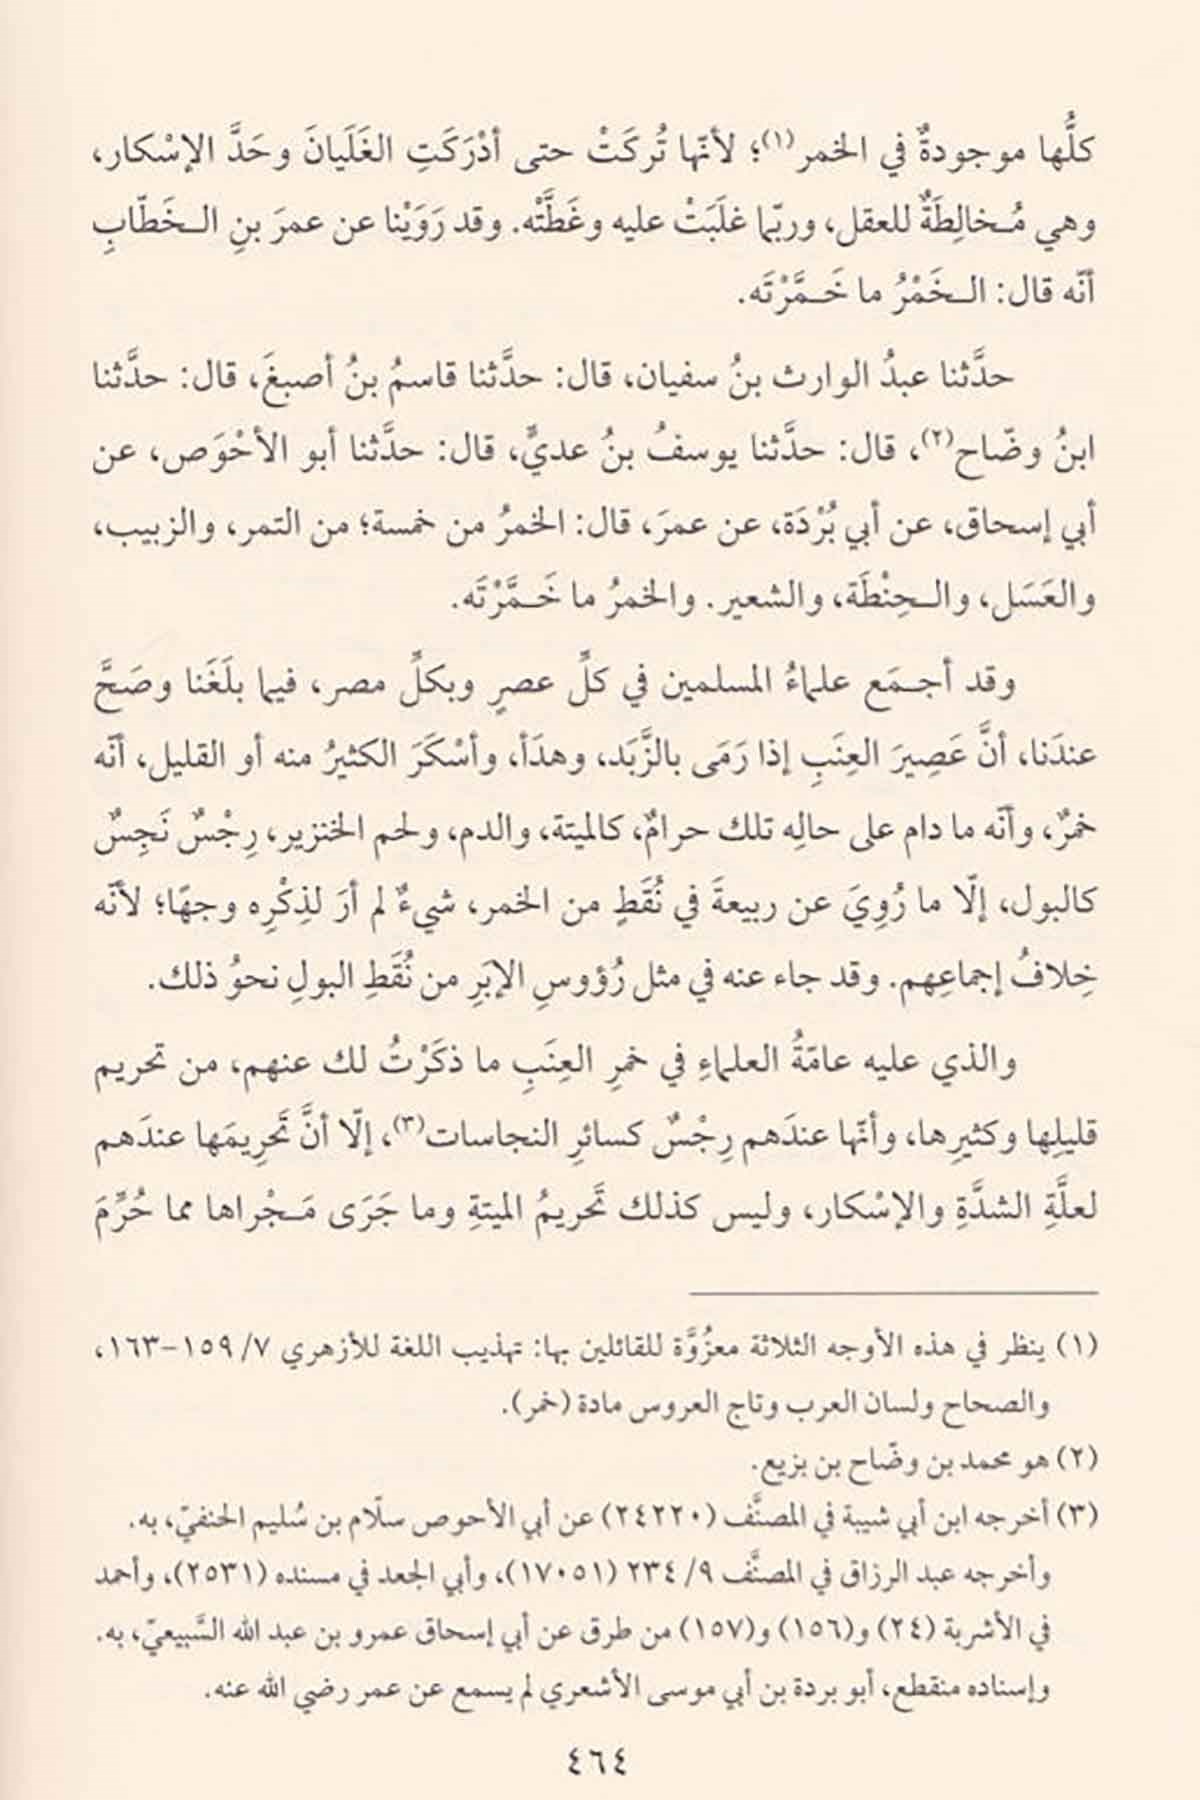 كلُّها موجودةٌ في الخمر(١)؛ لأنّها تُركَتْ حتى أدْرَكَتِ الغَلَيانَ وحَدَّ الإسْكار،
وهي مُـخالِطَةٌ للعقل، وربّما غلَبَتْ عليه وغَطَّتْه. وقد رَوَيْنا عن عمرَ بنِ الـخَطّابِ
أنّه قال: الـخَمْرُ ما خَـمَّرْتَه.
حدَّثنا عبدُ الوارث بنُ سفيان، قال: حدَّثنا قاسمُ بنُ أصبغَ، قال: حدَّثنا
ابنُ وضّاح(٢)، قال: حدَّثنا يوسفُ بنُ عديٍّ، قال: حدَّثنا أبو الأحْوَص، عن
أبي إسحاق، عن أبي بُرْدَة، عن عمرَ، قال: الخمرُ من خمسة؛ من التمر، والزبيب،
والعَسَل، والـحِنْطَة، والشعير. والخمرُ ما خَـمَّرْتَه.
وقد أجـمَع علماءُ المسلمين في كلِّ عصرٍ وبكلِّ مصر، فيما بلَغَنا وصَحَّ
عندَنا، أنَّ عَصِيرَ العِنَبِ إذا رَمَى بالزَّبَد، وهدَأ، وأسْكَرَ الكثيرُ منه أو القليل، أنّه
خمرٌ، وأنّه ما دام على حالِه تلك حرامٌ، كالميتة، والدم، ولحم الخنزير، رِجْسٌ نَجِسٌ
كالبول، إلّا ما رُوِيَ عن ربيعةَ في نُقَطٍ من الخمر، شيءٌ لم أرَ لذِكْرِه وجهًا؛ لأنّه
خِلافُ إجماعِهم. وقد جاء عنه في مثل رُؤوسِ الإبَرِ من نُقَطِ البولِ نحوُ ذلك.
والذي عليه عامّةُ العلماءِ في خمرِ العِنَبِ ما ذكَرْتُ لك عنهم، من تحريم
قليلِها وكثيرِها، وأنّها عندَهم رِجْسٌ كسائرِ النجاسات(٣)، إلّا أنَّ تَحرِيمَها عندَهم
لعلَّةِ الشدَّةِ والإسْكار، وليس كذلك تَحريمُ الميتةِ وما جَرَى مَـجْراها مما حُرِّمَ
(١) ينظر في هذه الأوجه الثلاثة معزُوَّة للقائلين بها: تهذيب اللغة للأزهري ٧/ ١٥٩-١٦٣،
والصحاح ولسان العرب وتاج العروس مادة (خمر).
(٢) هو محمد بن وضّاح بن بزيع.
(٣) أخرجه ابن أبي شيبة في المصنَّف (٢٤٢٢٠) عن أبي الأحوص سلّام بن سُليم الحنفيّ، به.
وأخرجه عبد الرزاق في المصنَّف ٩/ ٢٣٤ (١٧٠٥١)، وأبي الجعد في مسنده (٢٥٣١)، وأحمد
في الأشربة (٢٤) و(١٥٦) و(١٥٧) من طرق عن أبي إسحاق عمرو بن عبد الله السَّبيعيّ، به.
وإسناده منقطع، أبو بردة بن أبي موسى الأشعري لم يسمع عن عمر رضي الله عنه.
٤٦٤